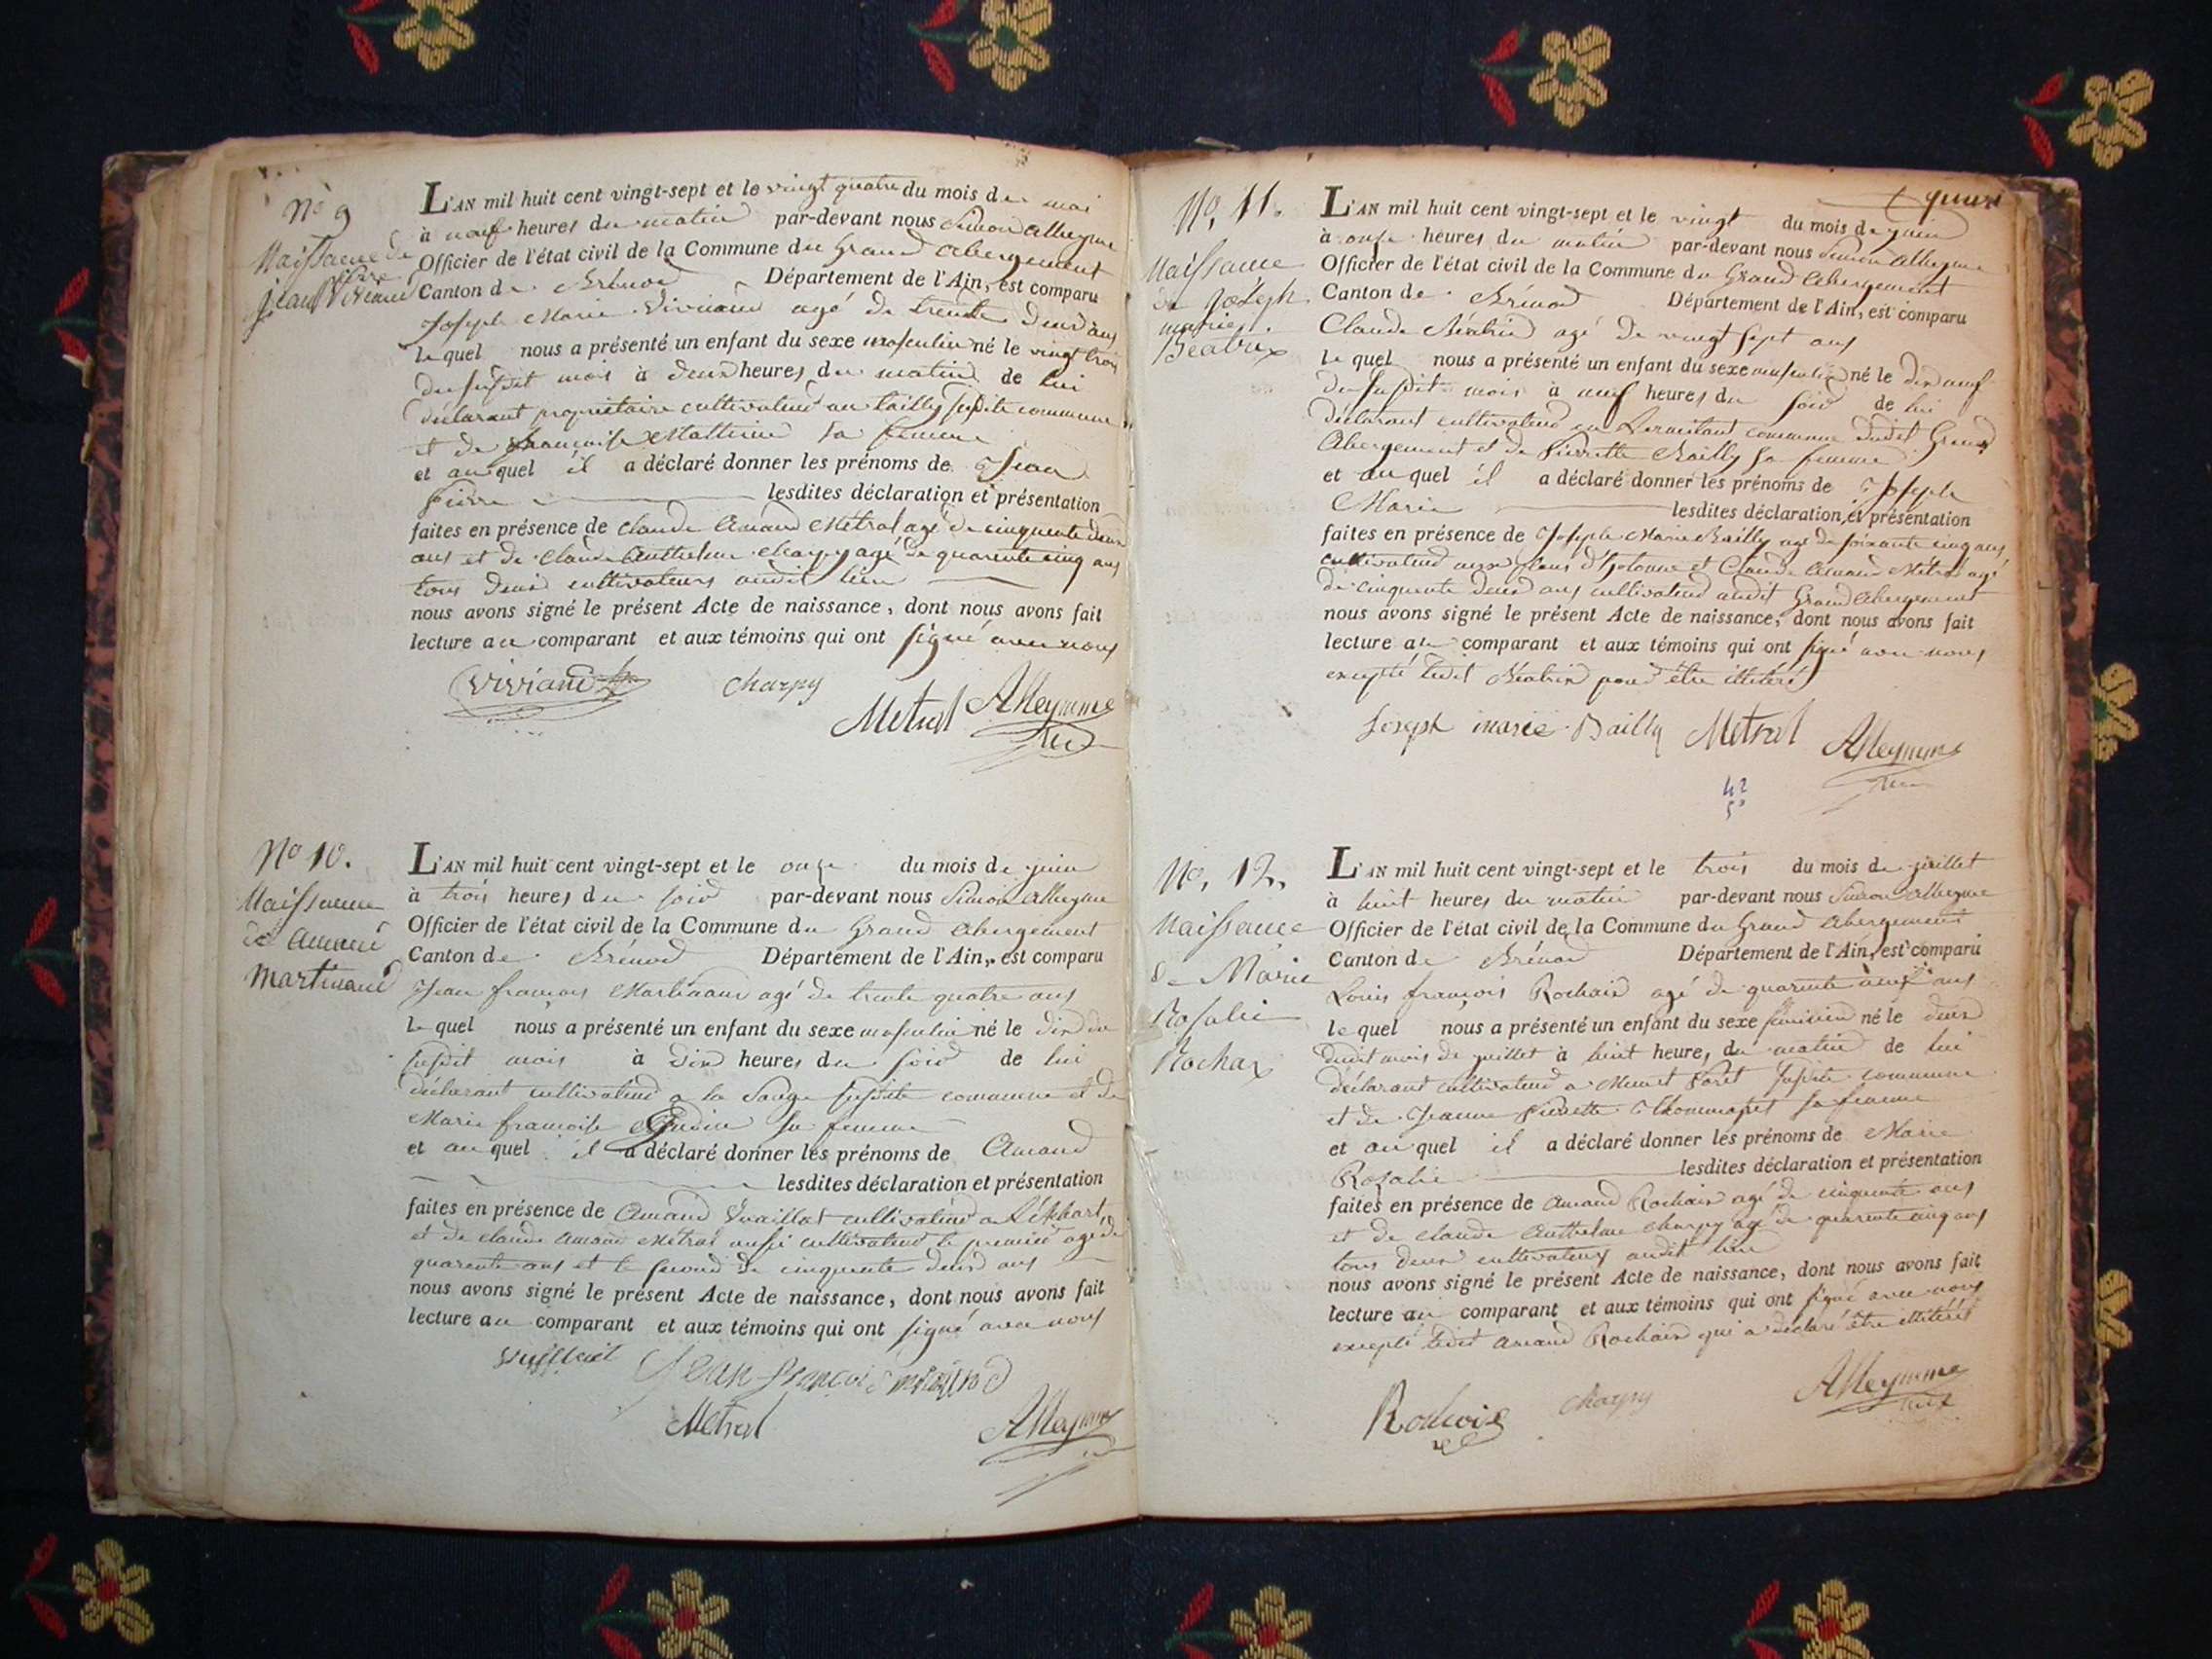 No 9
Naissance de
jean pierre Viviand
L'AN mil huit cent vingt-sept et le vingt quatre du mois de mai
à neuf heures du matin par-devant nous Simon alleyme
Officier de l'état civil de la Commune du Grand abergement
Canton de Brénod Département de l'Ain, est comparu
Joseph Marie Viviand agé de trente deux ans
lequel nous a présenté un enfant du sexe masculin né le vingt trois
du susdit mois à deux heures du matin de lui
déclarant propriétaire cultivateur au tailly susdite commune
et de françoise Mathieu sa femme
et auquel il a déclaré donner les prénoms de Jean
Pierre lesdites déclaration et présentation
faites en présence de Claude Amand Métral agé de cinquante deux
ans et de Claude Anthelme charpy agé de quarente cinq ans
tous deux cultivateurs audit lieu
nous avons signé le présent Acte de naissance, dont nous avons fait
lecture au comparant et aux témoins qui ont signé avec nous
Viviand charpy
Metral Alleymme
No 10.
Naissance
de amand
Martinand
L'AN mil huit cent vingt-sept et le onze du mois de juin
à trois heures du soir par-devant nous Simon alleyme
Officier de l'état civil de la Commune du Grand abergement
Canton de Brénod Département de l'Ain, est comparu
Jean françois Martinand agé de trente quatre ans
lequel nous a présenté un enfant du sexe masculin né le dix du
susdit mois à dix heures du soir de lui
déclarant cultivateur a la Sauge susdite commune et de
Marie françoise sa femme
et auquel il a déclaré donner les prénoms de Amand
lesdites déclaration et présentation
faites en présence de Amand Vuaillat cultivateur a
et de claude amand Métral aussi cultivateur le premier agé de
quarente ans et le second de cinquente deux ans
nous avons signé le présent Acte de naissance, dont nous avons fait
lecture au comparant et aux témoins qui ont signé avec nous
Jean françois
Metral Alleymme
quinze
No, 11.
Naissance
de joseph
marie
Béatrix
L'AN mil huit cent vingt-sept et le vingt du mois de juin
à onze heures du matin par-devant nous Simon alleyme
Officier de l'état civil de la Commune du Grand abergement
Canton de Brénod Département de l'Ain, est comparu
Claude Béatrix agé de vingt sept ans
lequel nous a présenté un enfant du sexe masculin né le dix neuf
du susdit mois à neuf heures du soir de lui
déclarant cultivateur en commune dudit Grand
Abergement et de Pierrette Bailly sa femme
et auquel il a déclaré donner les prénoms de Joseph
Marie lesdites déclaration et présentation
faites en présence de Joseph Marie Bailly agé de soixante cinq ans
cultivateur aux plans d'hotonne et Claude Amand Métral agé
de cinquente deux ans cultivateur audit Grand abergement
nous avons signé le présent Acte de naissance, dont nous avons fait
lecture au comparant et aux témoins qui ont signé avec nous
excepté ledit Béatrix pour être illitéré
Joseph marie Bailly Metral Alleymme
42
No, 12,
Naissance
de Marie
Rosalie
Rochaix
L'AN mil huit cent vingt-sept et le trois du mois de juillet
à huit heures du matin par-devant nous Simon alleyme
Officier de l'état civil de la Commune du Grand abergement
Canton de Brénod Département de l'Ain, est comparu
Louis françois Rochaix agé de quarente ans
lequel nous a présenté un enfant du sexe féminin né le deux
dudit mois de juillet à huit heures du matin de lui
déclarant cultivateur a susdite commune
et de Jeanne Pierrette sa femme
et auquel il a déclaré donner les prénoms de Marie
Rosalie lesdites déclaration et présentation
faites en présence de amand Rochaix agé de cinquente ans
et de claude Anthelme charpy agé de quarente cinq ans
tous deux cultivateurs audit lieu
nous avons signé le présent Acte de naissance, dont nous avons fait
lecture au comparant et aux témoins qui ont signé avec nous
excepté ledit amand Rochaix qui a déclaré être illitéré
charpy Alleymme